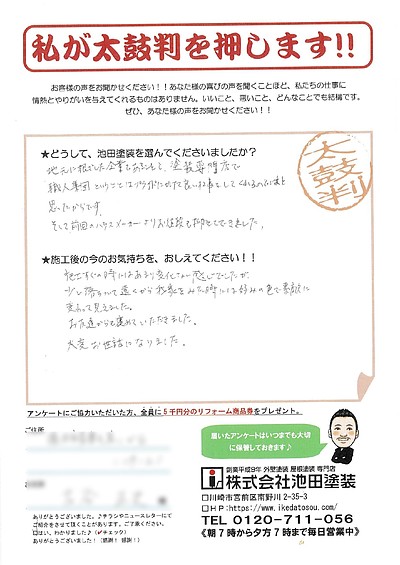 私が太鼓判を押します!!
お客様の声をお聞かせください！！あなた様の喜びの声を聞くことほど、私たちの仕事に
情熱とやりがいを与えてくれるものはありません。いいこと、悪いこと、どんなことでも結構です。
ぜひ、あなた様の声をお聞かせください！！
太鼓判
★どうして、池田塗装を選んでくださいましたか？
地元に根ざした企業でもあるし、塗装専門店で
職人集団ということは
思ったからです。
そして前回のハウスメーカーよりお値段も
★施工後の今のお気持ちを、おしえてください！！
施工すぐの時にはあまり変化ない感じでしたが
少し離れて遠くから我家をみた時には好みの色で素敵に
変わって見えました。
お友達からも褒めていただきました。
大変お世話になりました。
アンケートにご協力いただいた方、全員に５千円分のリフォーム商品券をプレゼント。
ご住所
届いたアンケートはいつまでも大切
に保管しておきます♥
創業平成9年 外壁塗装 屋根塗装 専門店
株式会社池田塗装
□川崎市宮前区南野川 2-35-3
□HP:https://www.ikedatosou.com/
TEL 0120-711-056
《朝７時から夕方７時まで毎日営業中》
様
ありがとうございました。♪チラシやニュースレターにて
ご紹介をさせて頂くことがあります。ご了承ください。
□はい、わかりました♪（✓チェック）
ありがとうございました！（感謝！感謝！）